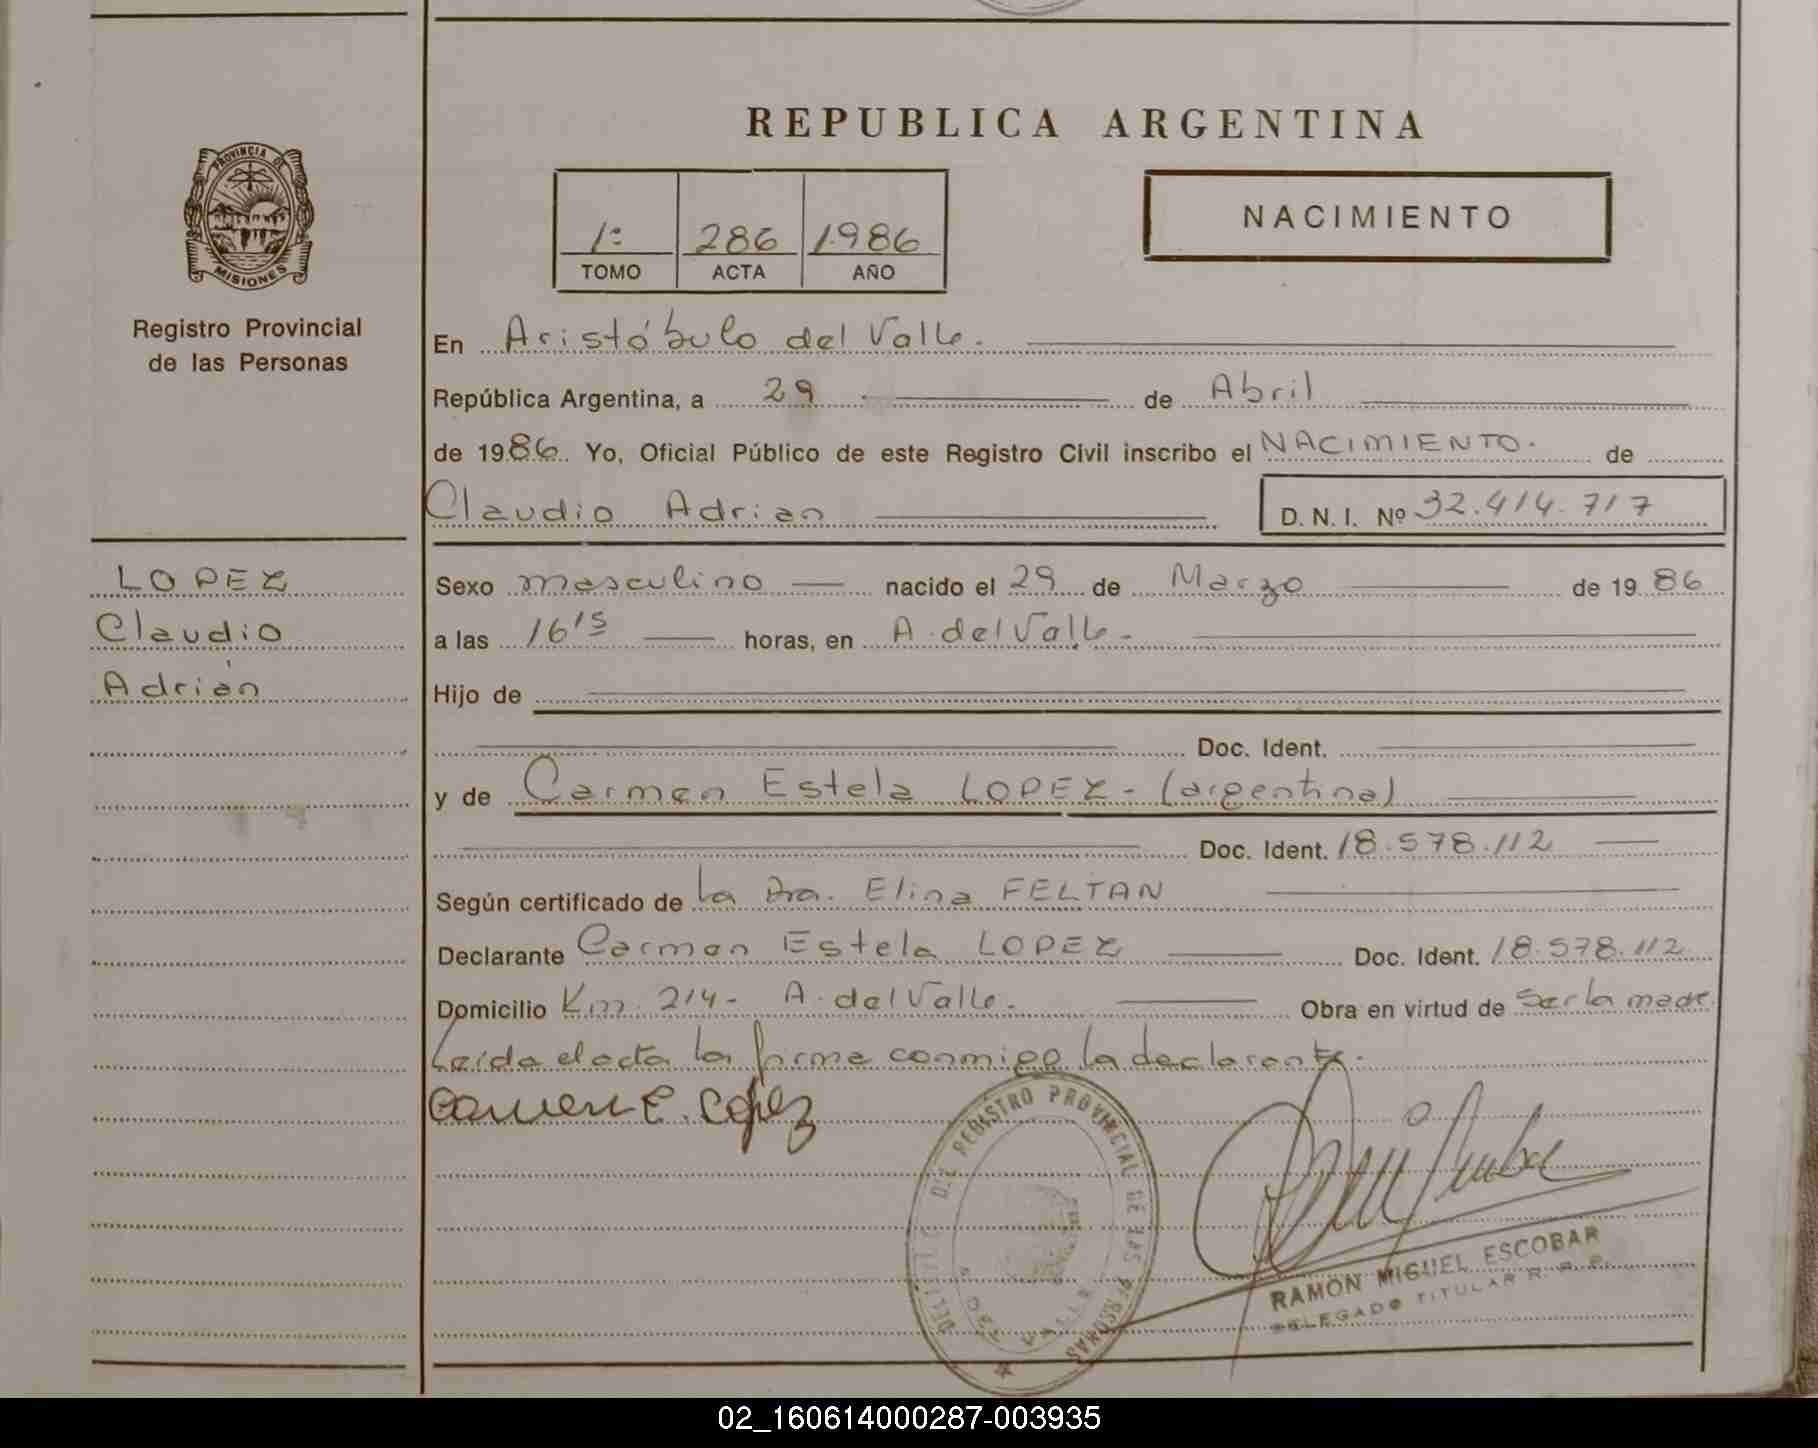 REPUBLICA ARGENTINA
PROVINCIA DE MISIONES
Registro Provincial
de las Personas
1º 286 1986
TOMO ACTA AÑO
NACIMIENTO
En Aristóbulo del Valle.
República Argentina, a 29 de Abril
de 1986. Yo, Oficial Público de este Registro Civil inscribo el NACIMIENTO. de
Claudio Adrian D.N.I. Nº 32.414.717
LOPEZ
Claudio
Adrián
Sexo masculino nacido el 29 de Marzo de 1986
a las 16¹⁵ horas, en A. del Valle.
Hijo de
Doc. Ident.
y de Carmen Estela LOPEZ - (argentina)
Doc. Ident. 18.578.112
Según certificado de la Dra. Elina FELTAN
Declarante Carmen Estela LOPEZ Doc. Ident. 18.578.112
Domicilio Km. 214- A. del Valle. Obra en virtud de Ser la madre.
Leída el acta la firma conmigo la declarante.
Carmen E. Lopez
DEL REGISTRO PROVINCIAL DE LAS PERSONAS
DEL VALLE
RAMON MIGUEL ESCOBAR
DELEGADO TITULAR R. P. P.
02_160614000287-003935